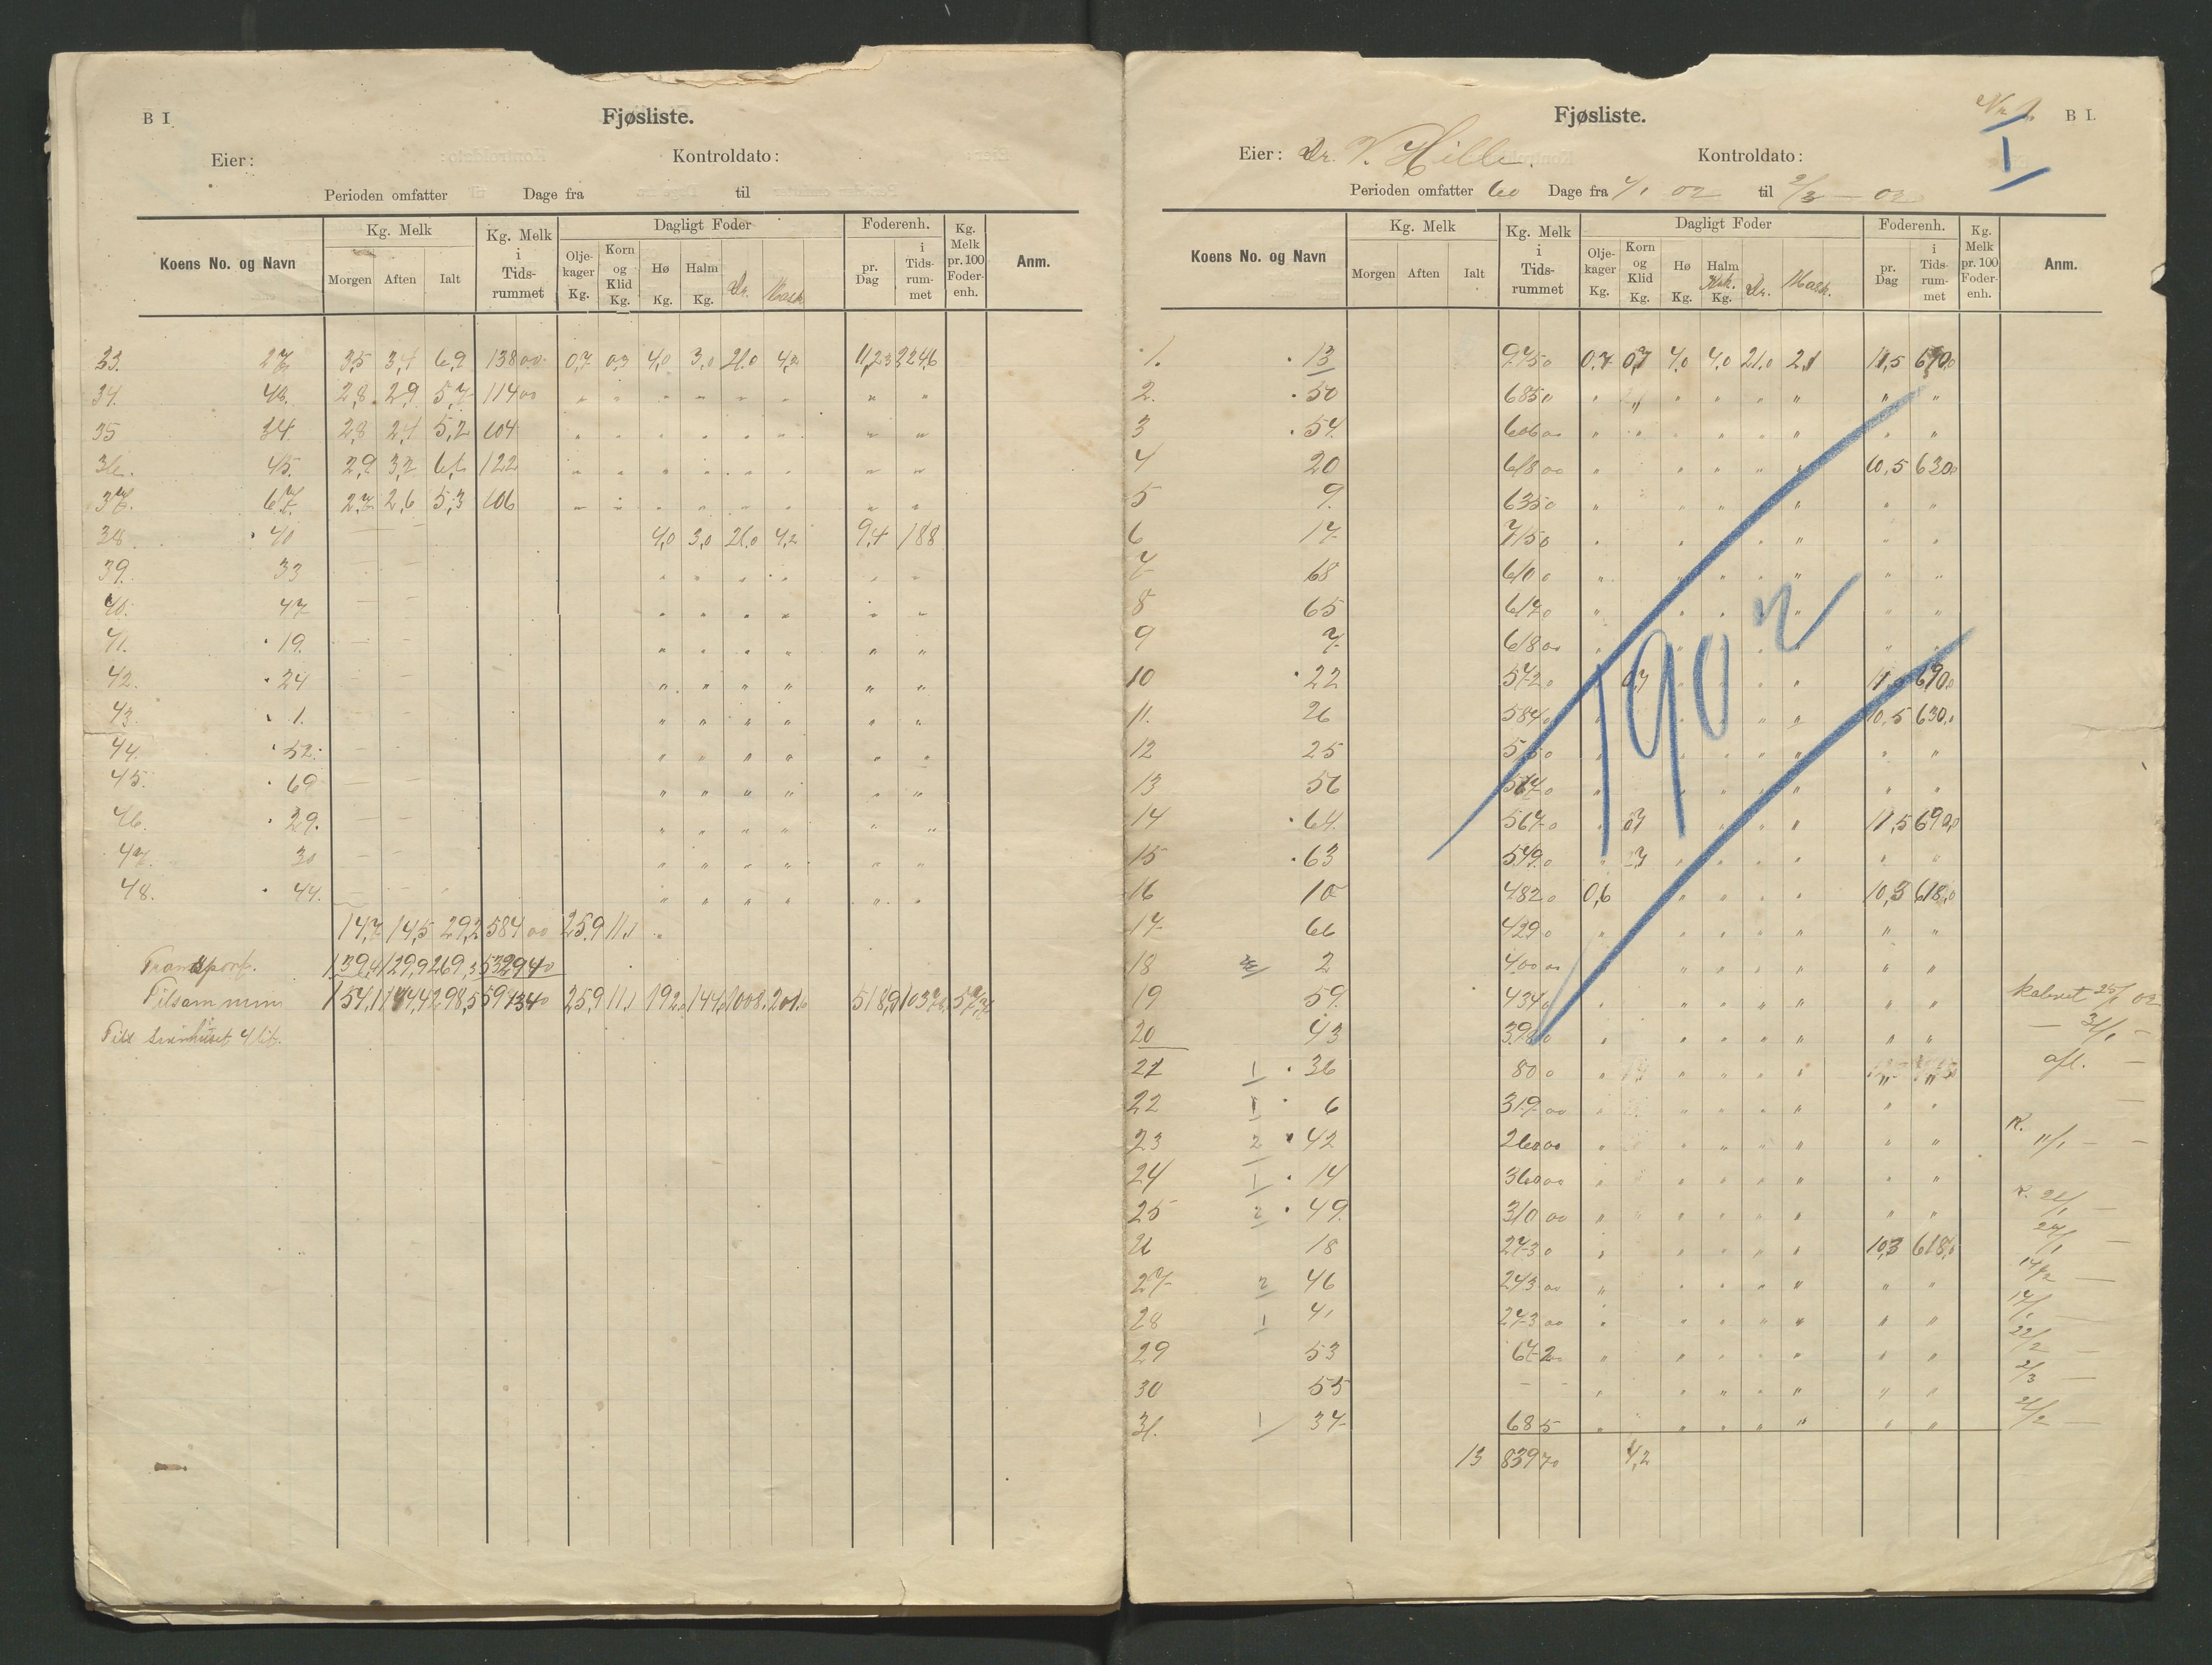 B I
Fjøsliste.
Eier:
Kontroldato:
Perioden omfatter
Dage fra
til
Koens No. og Navn
Kg. Melk
Morgen
Aften
Ialt
Kg. Melk i Tids-rummet
Dagligt Foder
Olje-kager Kg.
Korn og Klid Kg.
Hø Kg.
Halm Kg.
Dr.
Mask.
Foderenh.
pr. Dag
i Tids-rum-met
Kg. Melk pr. 100 Foder-enh.
Anm.
33. 27 3,5 3,4 6,9 138 00 0,7 0,3 4,0 3,0 21,0 4,2 11,23 224,6
34. 48. 2,8 2,9 5,7 114 00 " " " " " " " "
35 34. 2,8 2,4 5,2 104 " " " " " " " "
36. 45. 2,9 3,2 6,1 122 " " " " " " " "
37. 67. 2,7 2,6 5,3 106 " " " " " " " "
38. 40 — — 4,0 3,0 21,0 4,2 9,4 188
39. 33 — — " " " " " "
40. 47 — — " " " " " "
41. 19. — — " " " " " "
42. 24 — — " " " " " "
43. 1. — — " " " " " "
44. 52. — — " " " " " "
45. 69 — — " " " " " "
46. 29. — — " " " " " "
47. 30 — — " " " " " "
48. 44. — — " " " " " "
14,7 14,5 29,2 584 00 25,9 11,1 "
Transport. 139,4 129,9 269,3 5329 40
Tilsammen 154,1 144,4 298,5 5913 40 25,9 11,1 192,0 144,0 1008,0 201,6 518,9 1037
Till 4 lit.
Fjøsliste.
No 1.
B I.
I
Eier: Dr. V. Hille.
Kontroldato:
Perioden omfatter 60 Dage fra 4/1 02 til 2/3 — 02
Koens No. og Navn
Kg. Melk
Morgen
Aften
Ialt
Kg. Melk i Tids-rummet
Dagligt Foder
Olje-kager Kg.
Korn og Klid Kg.
Hø Kg.
Halm Kg.
Dr.
Mask.
Foderenh.
pr. Dag
i Tids-rum-met
Kg. Melk pr. 100 Foder-enh.
Anm.
1. 13 975 0 0,7 0,7 4,0 4,0 21,0 2,1 11,5 690,0
2. 50 685 " " " " " " " " " "
3 54. 606 00 " " " " " " " "
4 20 618 00 " " " " " 10,5 630,0
5 9. 635 0 " " " " " " "
6 17 715 0 " " " " " " "
7 68 610 0 " " " " " " "
8 65 617 0 " " " " " " "
9 7 618 00 " " " " " " "
10 22 572 0 0,7 " " " " 11,5 690,0
11. 26 584 0 " " " " " 10,5 630,0
12 25 515 0 " " " " " " "
13 56 567 0 " " " " " " "
14 64. 567 0 " 0,7 " " " 11,5 690,0
15 63 549 0 " 0,7 " " " " " "
16 10 482 0 0,6 " " " " 10,3 618,0
17 66 429 0 " " " " " " "
18 2 400 00 " " " " " "
19 59. 434 0 " " " " " " " kalvet 25/1 02
20 43 398 0 " " " " " " " — 31/1 —
21 1 36 80 0 " " " " " " " afl. —
22 1 6 319 00 " " " " " " " —
23 2 42 260 00 " " " " " " " K. 11/1 — —
24 1 14 360 00 " " " " " " "
25 2 49. 310 00 " " " " " " " K. 21/1 —
26 18 273 0 " " " " " 10,3 618,0 24/1 —
27 2 46 243 00 " " " " " " " 14/2 —
28 1 41 273 00 " " " " " " " 17/1 —
29 53 67 2 " " " " " " " 22/2 —
30 55 — — " " " " " " " 2/3 —
31. 1 37 68 5 " " " " " " " 21/2 —
13 839 70 4,2
1902